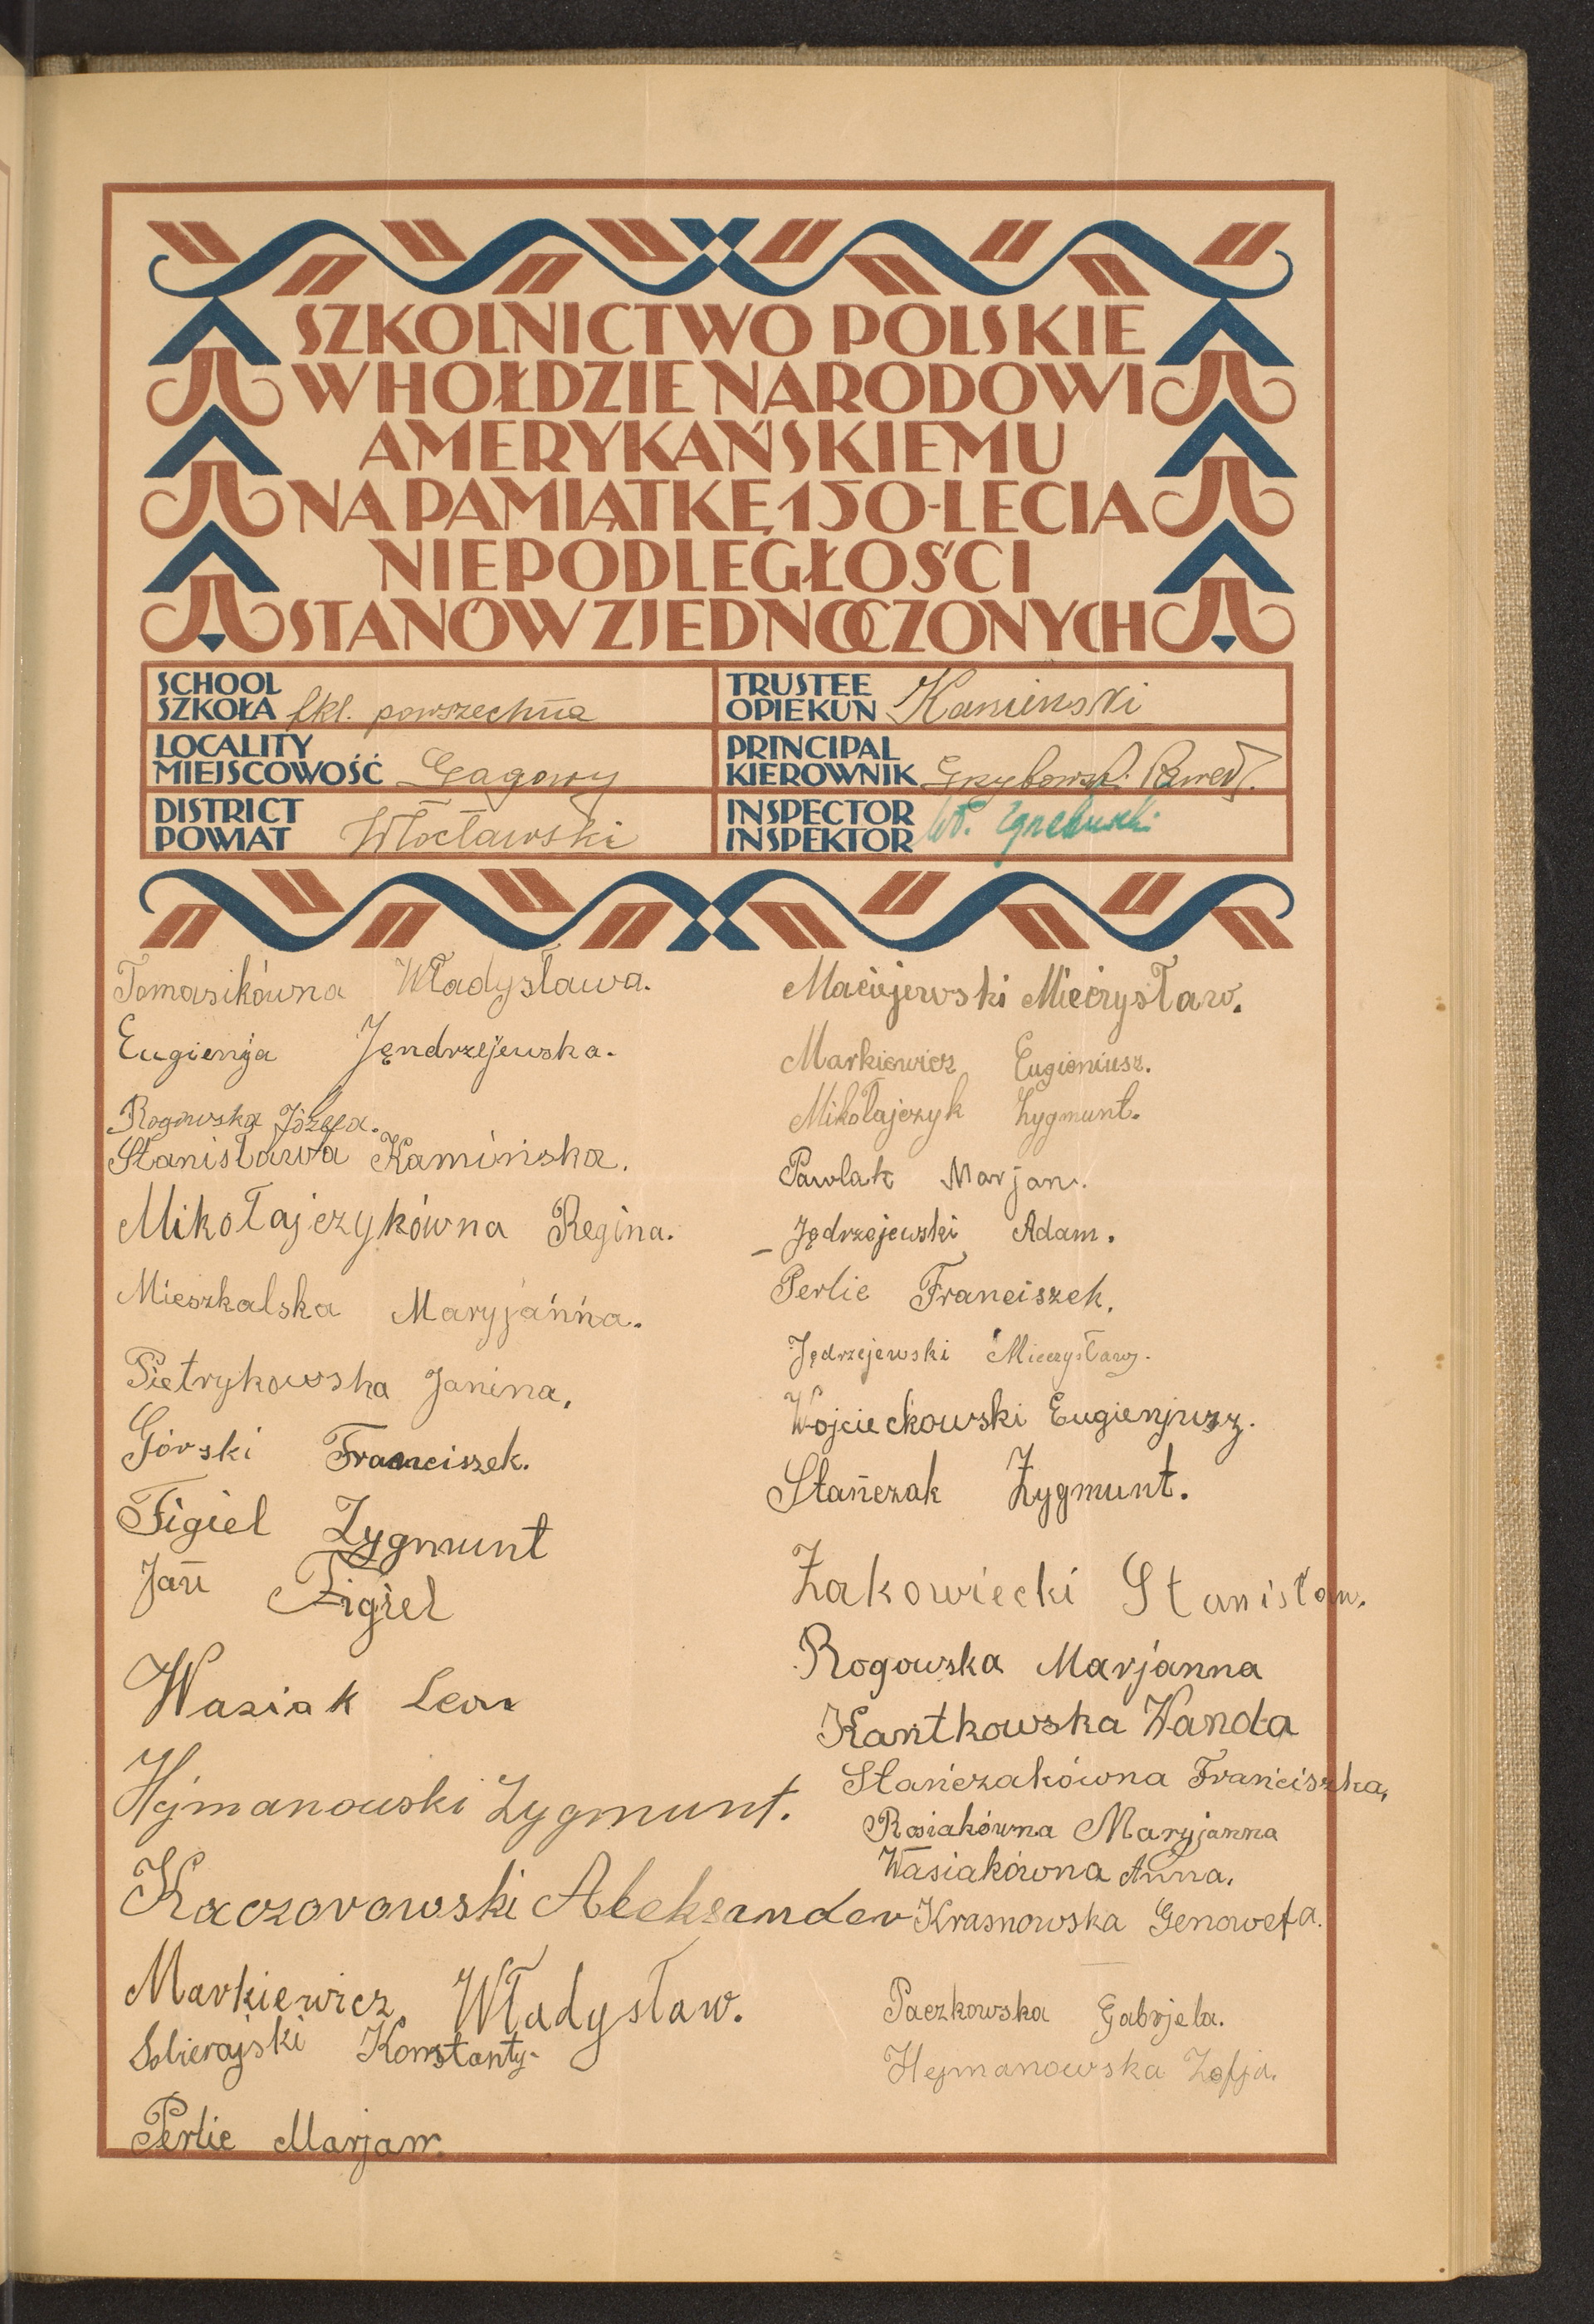 SZKOLNICTWO POLSKIE
W HOŁDZIE NARODOWI
AMERYKAŃSKIEMU
NA PAMIĄTKĘ 150-LECIA
NIEPODLEGŁOŚCI
STANÓW ZJEDNOCZONYCH
SCHOOL
SZKOŁA Szkl. powszechna
LOCALITY
MIEJSCOWOŚĆ Gagowy
DISTRICT
POWIAT Włocławski
TRUSTEE
OPIEKUN Kamiński
PRINCIPAL
KIEROWNIK Grzybowski Paweł.
INSPECTOR
INSPEKTOR Wł.
Tomasikówna Władysława.
Eugienja Jęndrzejewska.
Rogowska Józefa.
Stanisława Kamińska.
Mikołajczykówna Regina.
Mieszkalska Maryjánna.
Pietrykowska Janina,
Górski Franciszek.
Figiel Zygmunt
Jan Figiel
Wasiak Leon
Hejmanowski Zygmunt.
Kaczorowski Aleksander
Markiewicz Władysław.
Sobierajski Konstanty.
Perlic Marjan.
Maciejewski Mieczysław.
Markiewicz Eugieniusz.
Mikołajczyk Zygmunt.
Pawlak Marjan.
Jędrzejewski Adam.
Perlic Franciszek.
Jędrzejewski Mieczysław.
Wojciechowski Eugienjusz.
Stańczak Zygmunt.
Żakowiecki Stanisław.
Rogowska Marjanna
Kantkowska Wanda
Stańczakówna Franciszka,
Rosiakówna Maryjanna
Wasiakówna Anna.
Krasnowska Genowefa.
Paczkowska Gabrjela.
Hejmanowska Zofja.